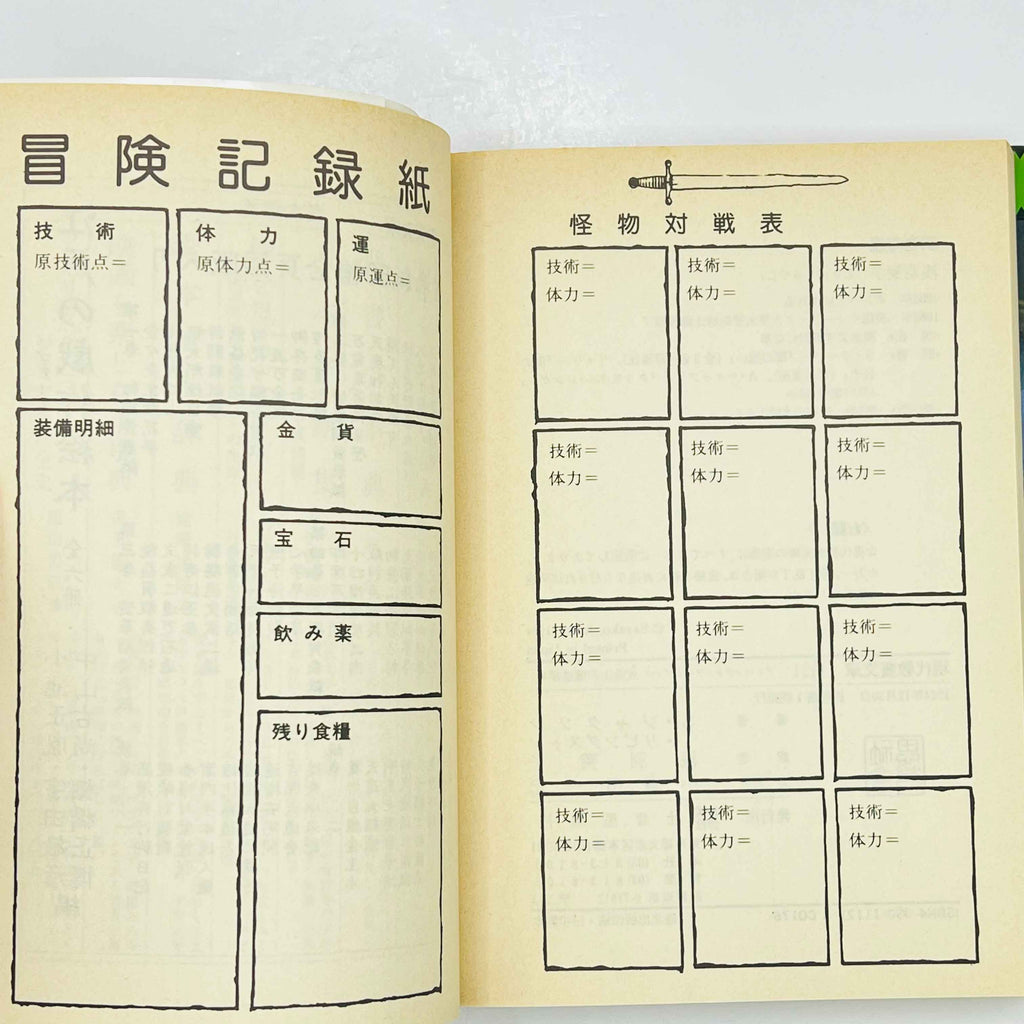 冒険記録紙
技術
原技術点＝
体力
原体力点＝
運
原運点＝
装備明細
金貨
宝石
飲み薬
残り食糧
怪物対戦表
技術＝
体力＝
技術＝
体力＝
技術＝
体力＝
技術＝
体力＝
技術＝
体力＝
技術＝
体力＝
技術＝
体力＝
技術＝
体力＝
技術＝
体力＝
技術＝
体力＝
技術＝
体力＝
技術＝
体力＝